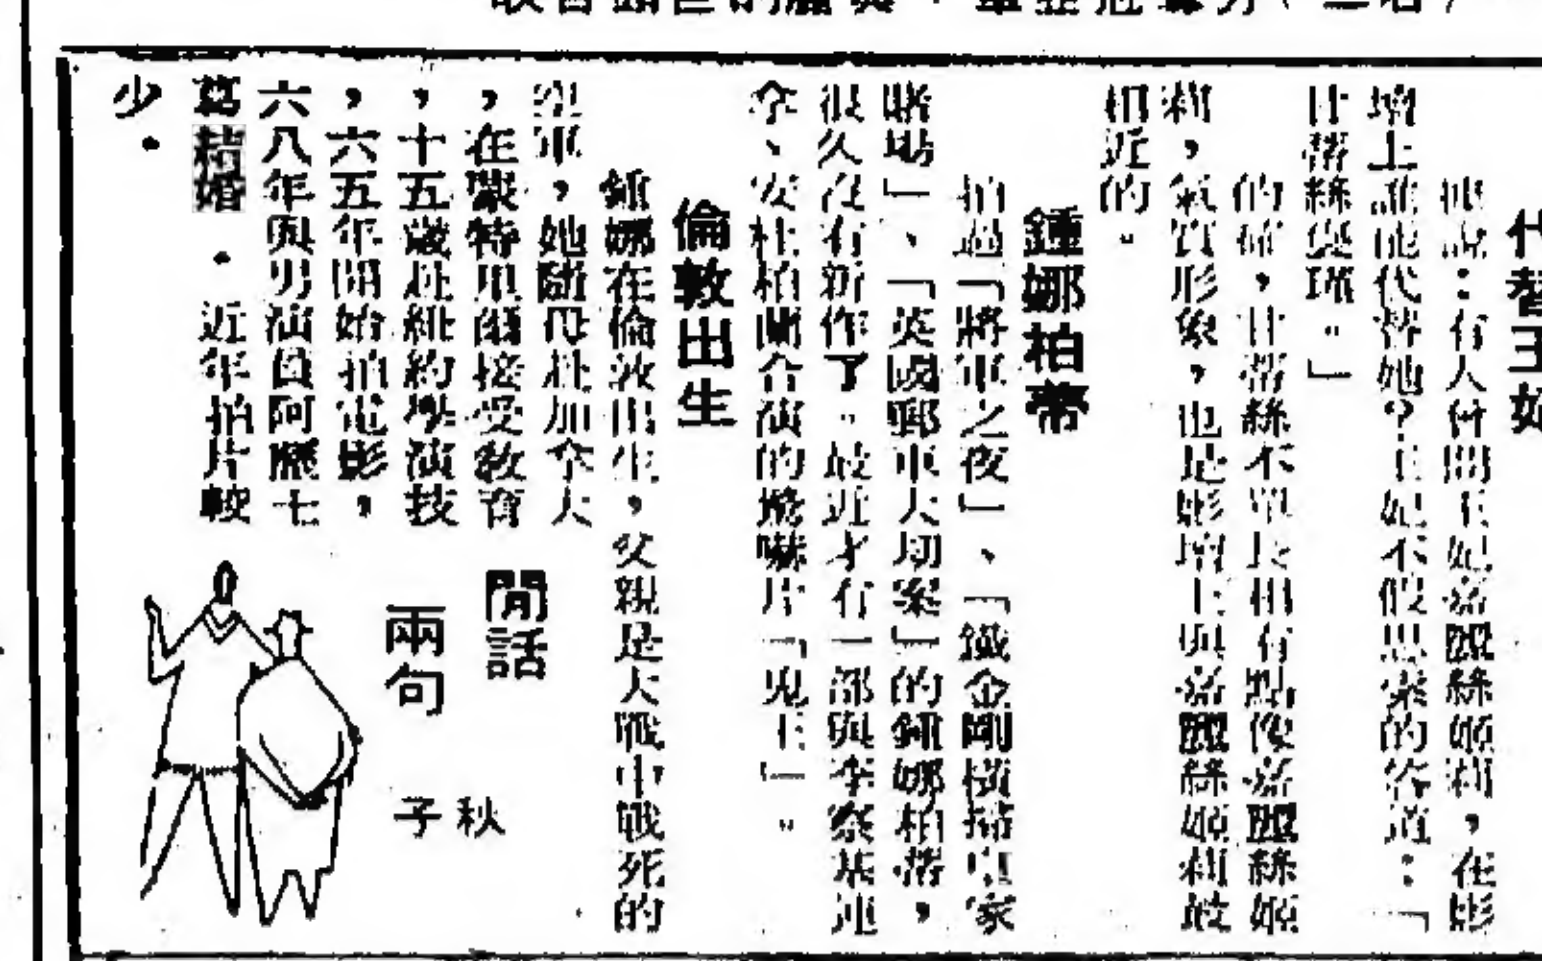 代替王妃
他說：有人曾問王妃嘉麗絲姬莉，在影
壇上誰能代替她？王妃不假思索的答道：「
甘蒂絲寳瑾。」
的確，甘蒂絲不單長相有點像嘉麗絲姬
莉，氣質形象，也是影壇上與嘉麗絲姬莉最
相近的。
鍾娜柏蒂
拍過「將軍之夜」、「鐵金剛橫掃皇家
賭場」、「英國郵車大刧案」的鍾娜柏蒂，
很久沒有新作了。最近才有一部與李察基連
拿、安杜柏蘭合演的驚嚇片「鬼王」。
倫敦出生
鍾娜在倫敦出生，父親是大戰中戰死的
空軍，她隨母赴加拿大
，在蒙特里爾接受敎育
，十五歲赴紐約學演技
，六五年開始拍電影，
六八年與男演員阿歷士
葛結婚．近年拍片較
少．
閒話
兩句
秋
子